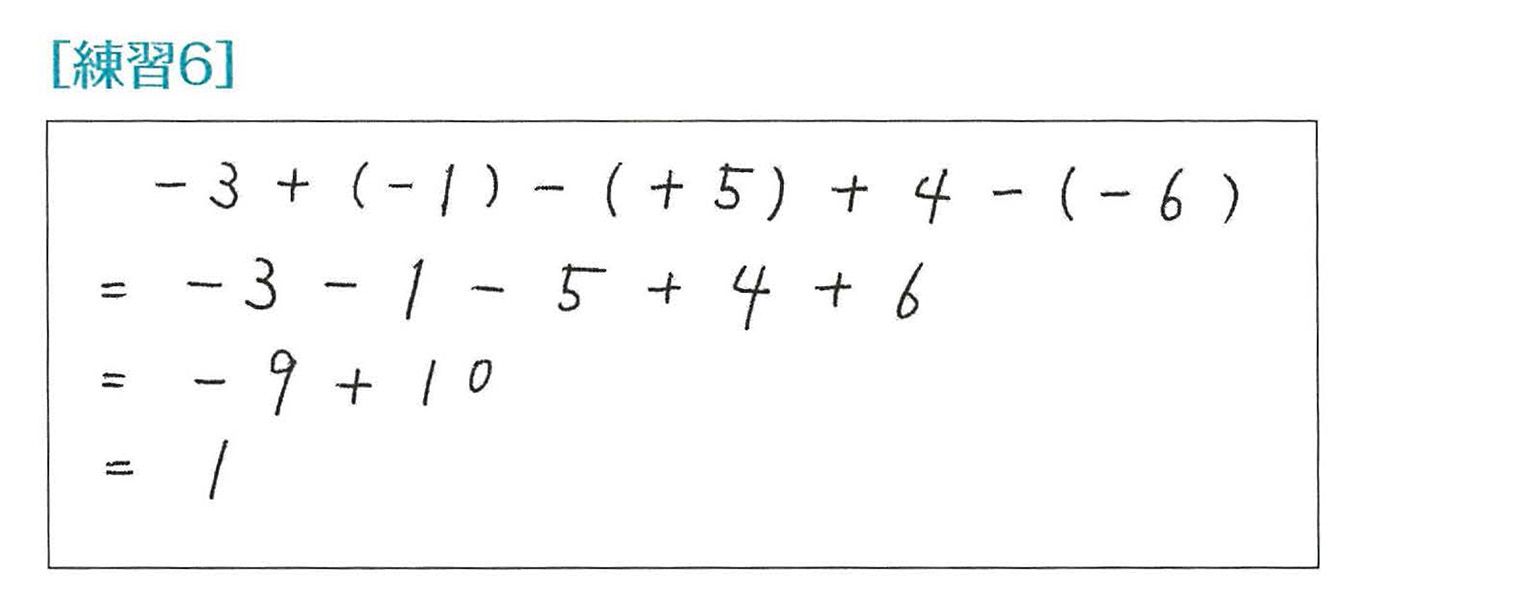 [練習6]
-3+(-1)-(+5)+4-(-6)
= -3-1-5+4+6
= -9+10
= 1